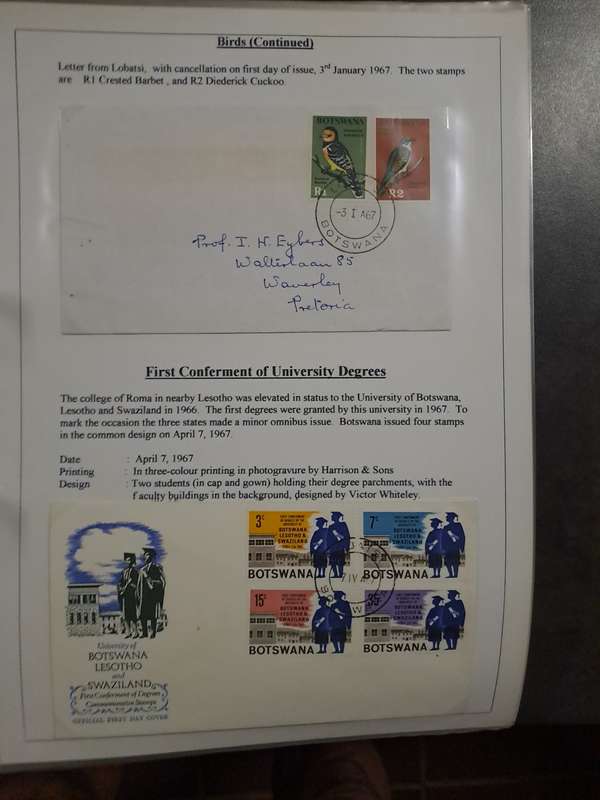 Birds (Continued)
Letter from Lobatsi, with cancellation on first day of issue, 3rd January 1967. The two stamps
are R1 Crested Barbet , and R2 Diederick Cuckoo.
BOTSWANA
R1
R2
-3 I A67
BOTSWANA
Prof. I. H. Eybers
Walterlaan 85
Waverley
Pretoria
First Conferment of University Degrees
The college of Roma in nearby Lesotho was elevated in status to the University of Botswana,
Lesotho and Swaziland in 1966. The first degrees were granted by this university in 1967. To
mark the occasion the three states made a minor omnibus issue. Botswana issued four stamps
in the common design on April 7, 1967.
Date : April 7, 1967
Printing : In three-colour printing in photogravure by Harrison & Sons
Design : Two students (in cap and gown) holding their degree parchments, with the
faculty buildings in the background, designed by Victor Whiteley.
3c
FIRST CONFERMENT
OF DEGREES BY THE
UNIVERSITY OF
BOTSWANA
LESOTHO &
SWAZILAND
BOTSWANA
7c
FIRST CONFERMENT
OF DEGREES BY THE
UNIVERSITY OF
BOTSWANA
LESOTHO &
SWAZILAND
BOTSWANA
15c
FIRST CONFERMENT
OF DEGREES BY THE
UNIVERSITY OF
BOTSWANA
LESOTHO &
SWAZILAND
BOTSWANA
35c
BOTSWANA
LESOTHO &
SWAZILAND
BOTSWANA
University of
BOTSWANA
LESOTHO
and
SWAZILAND
First Conferment of Degrees
Commemorative Stamps
OFFICIAL FIRST DAY COVER